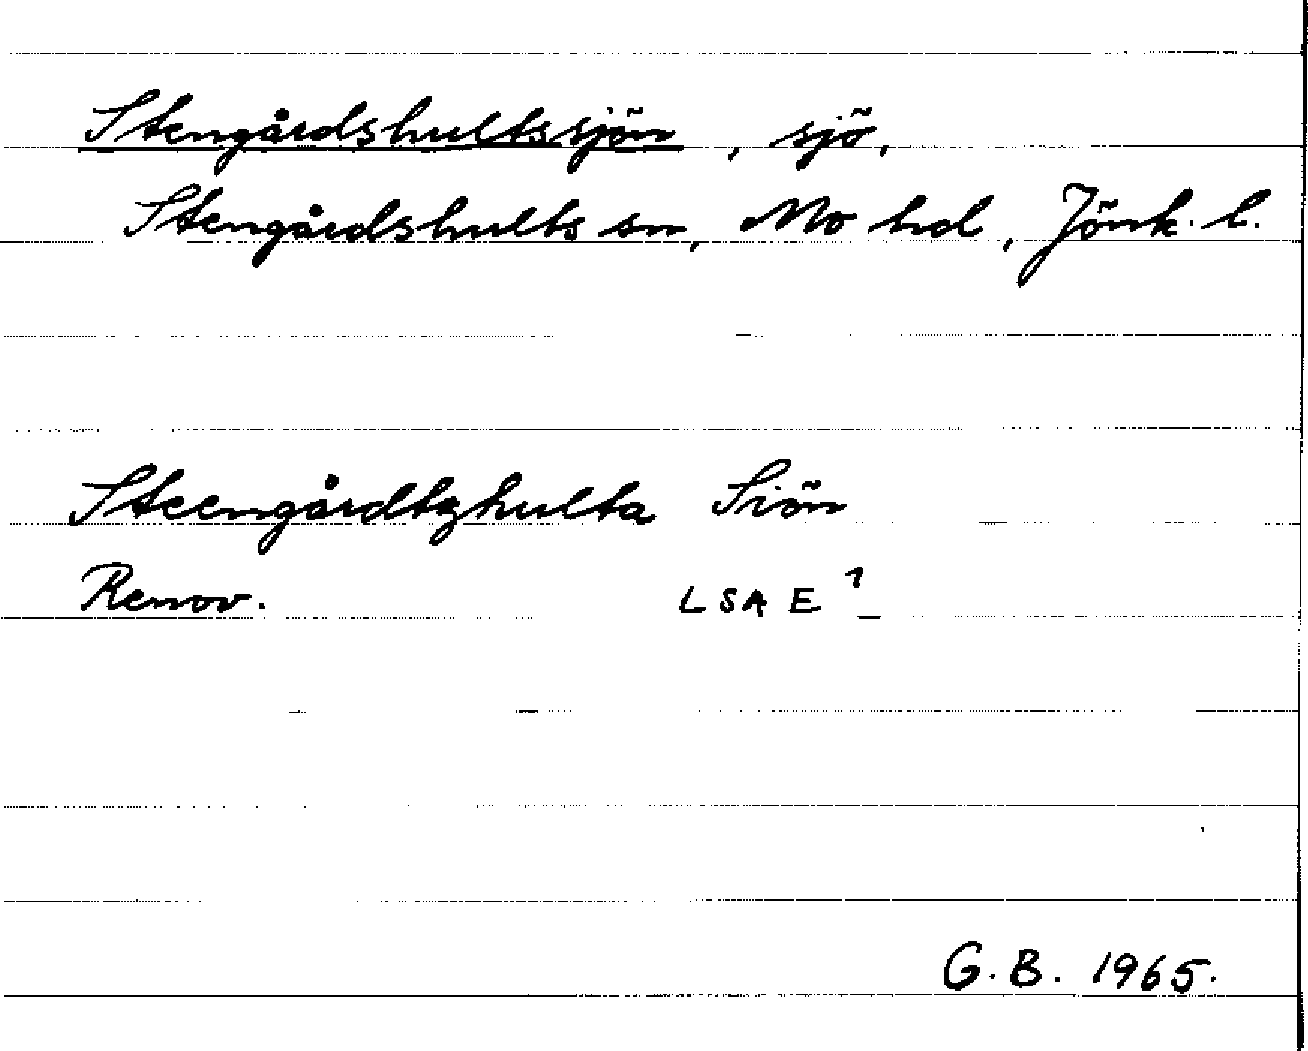 Stengårdshultssjön, sjö,
Stengårdshults sn, Mo hd, Jönk. l.
Steengårdtzhulta Siön
Renov. LSA E¹
G. B. 1965.